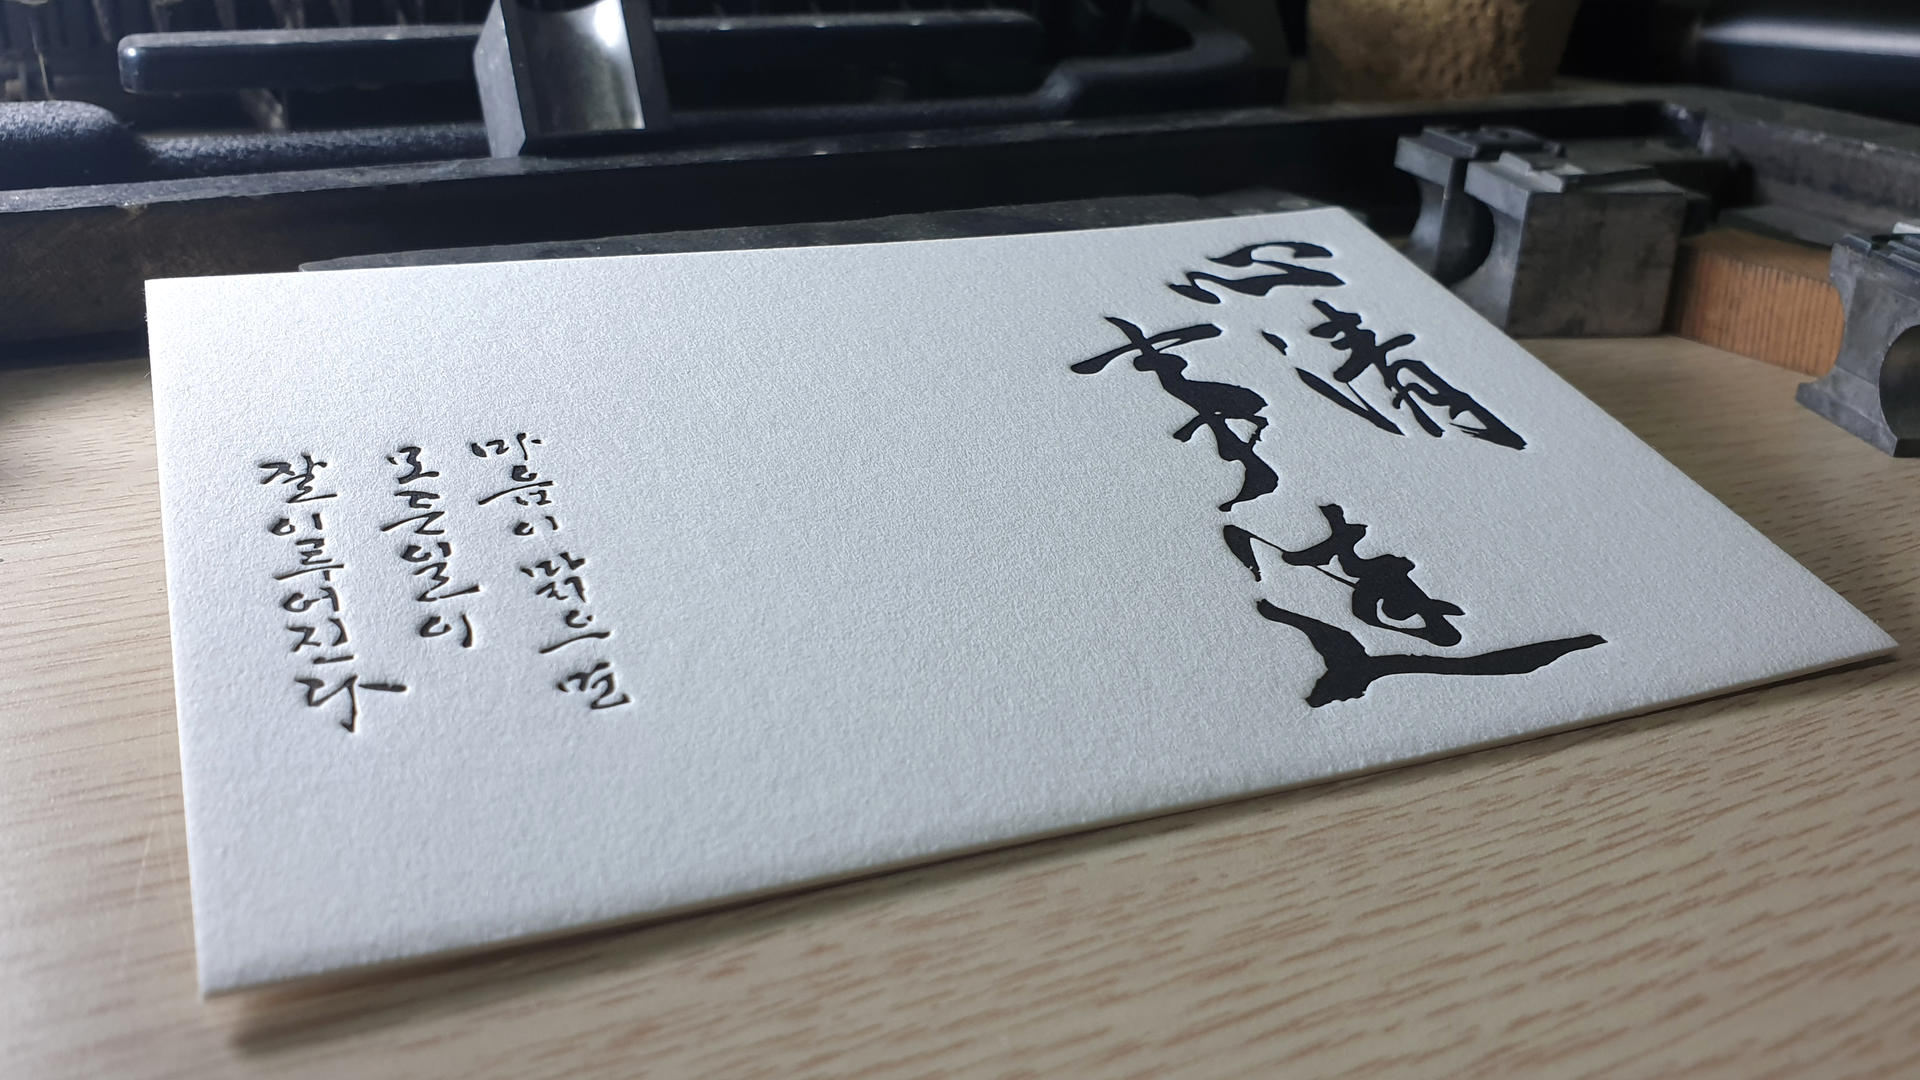 心清
事達
마음이 맑으면
모든 일이
잘 이루어진다